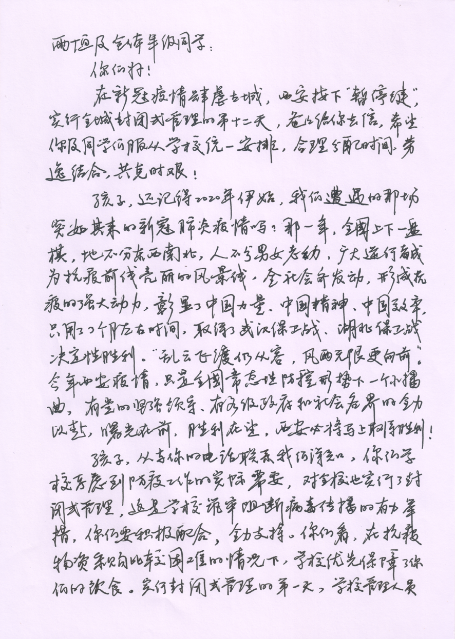 及全体年级同学：
你们好！
在新冠疫情肆虐古城，西安按下“暂停键”，
实行全城封闭式管理的第十二天，爸爸给你去信，希望
你及同学们服从学校统一安排，合理分配时间，劳
逸结合，共克时艰！
孩子，还记得2020年伊始，我们遭遇的那场
突如其来的新冠肺炎疫情吗？那一年，全国上下一盘
棋，地不分东西南北，人不分男女老幼，广大逆行者成
为抗疫前线亮丽的风景线，全社会齐发动，形成抗
疫的强大动力，彰显了中国力量、中国精神、中国效率，
只用了个月左右时间，取得了武汉保卫战、湖北保卫战
决定性胜利。“乱云飞渡仍从容，风雨无限更向前。
今年西安疫情，只是全国常态性防控形势下一个小插
曲，有党的坚强领导、有各级政府和社会各界的全力
以赴，曙光在前，胜利在望，西安必将马上取得胜利！
孩子，从与你的电话联系我们得知，你们学
校考虑到防疫工作的实际需要，对学校也实行了封
闭式管理，这是学校阻断病毒传播的有力举
措，你们要积极配合，全力支持。你们看，在抗疫
物资采购比较困难的情况下，学校优先保障了你
们的饮食。实行封闭式管理的第一天，学校管理人员